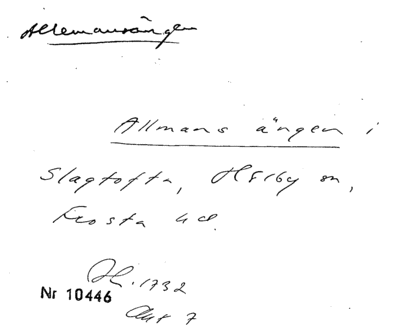 Allemansängen
Allmans ängen i
Slagtofta, Hörby sn,
Frosta hd.
1732
Nr 10446
Akt 7